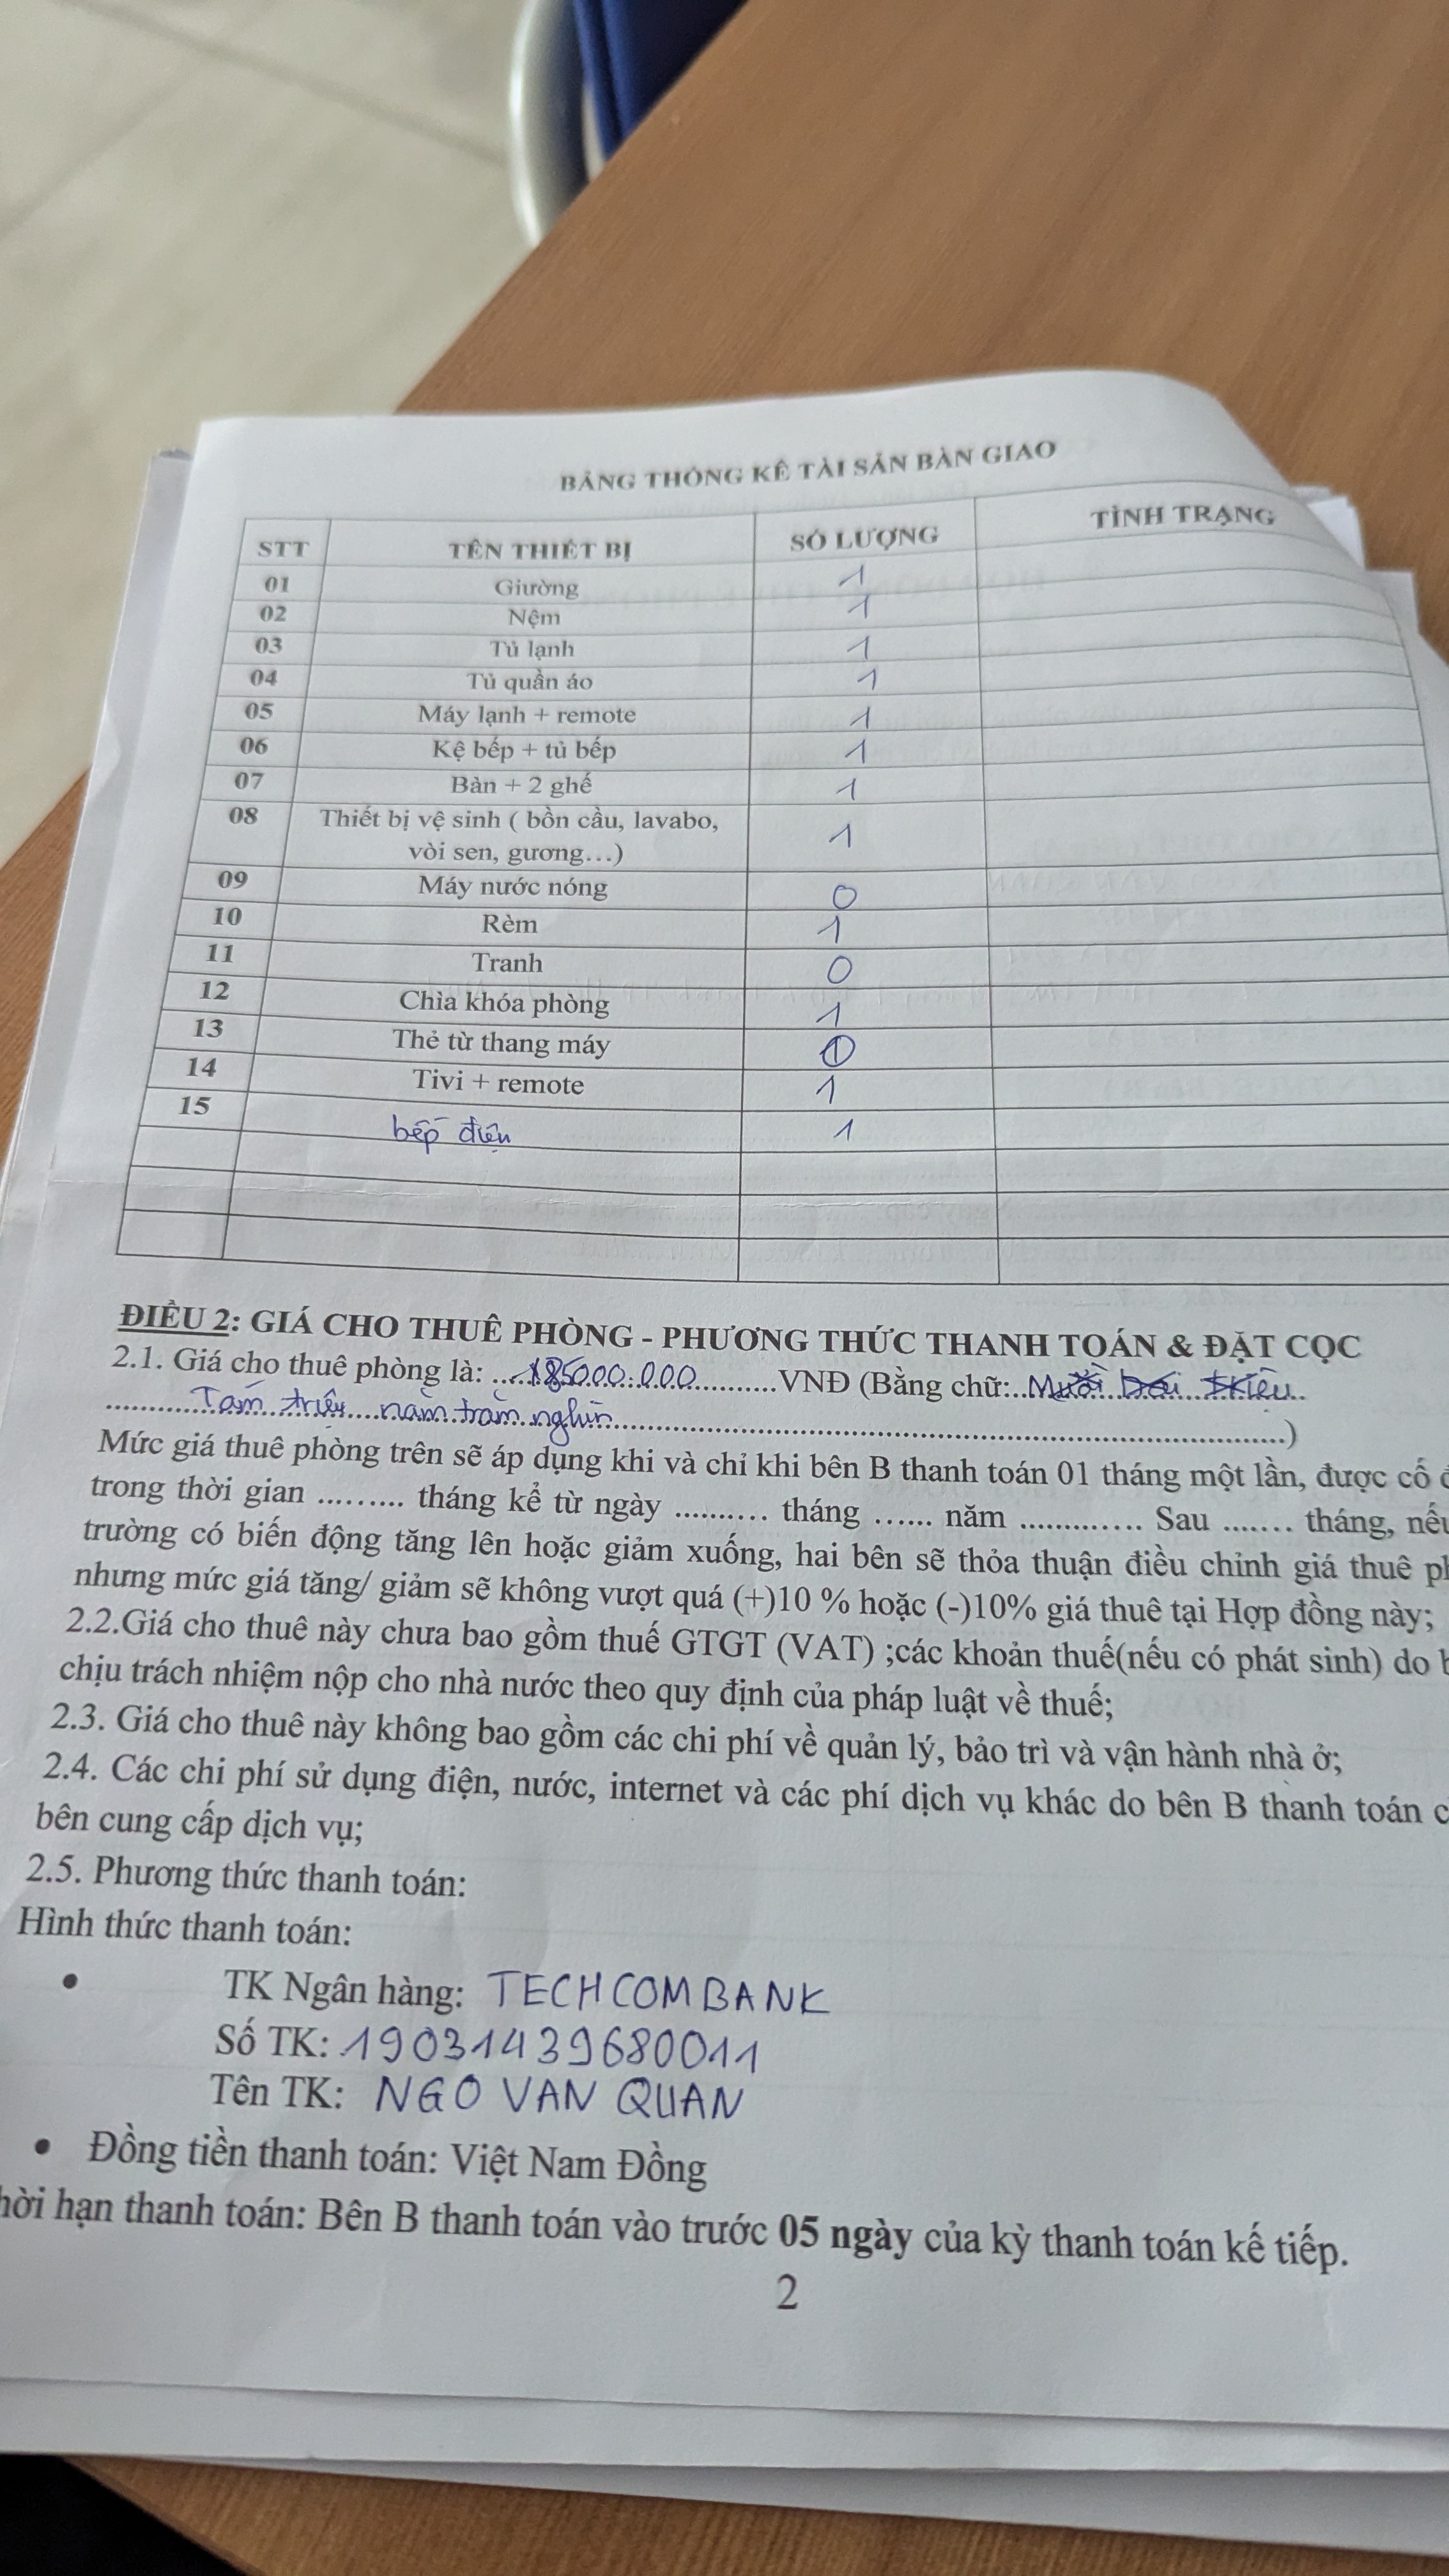 BẢNG THỐNG KÊ TÀI SẢN BÀN GIAO
STT TÊN THIẾT BỊ SỐ LƯỢNG TÌNH TRẠNG
01 Giường 1
02 Nệm 1
03 Tủ lạnh 1
04 Tủ quần áo 1
05 Máy lạnh + remote 1
06 Kệ bếp + tủ bếp 1
07 Bàn + 2 ghế 1
08 Thiết bị vệ sinh ( bồn cầu, lavabo, 1
vòi sen, gương…)
09 Máy nước nóng 0
10 Rèm 1
11 Tranh 0
12 Chìa khóa phòng 1
13 Thẻ từ thang máy
14 Tivi + remote 1
15 bếp điện 1
ĐIỀU 2: GIÁ CHO THUÊ PHÒNG - PHƯƠNG THỨC THANH TOÁN & ĐẶT CỌC
2.1. Giá cho thuê phòng là: .............VNĐ (Bằng chữ:..
Tám triệu năm trăm nghìn............)
Mức giá thuê phòng trên sẽ áp dụng khi và chỉ khi bên B thanh toán 01 tháng một lần, được cố
trong thời gian ......... tháng kể từ ngày .......... tháng ...... năm ............. Sau ....... tháng, nếu
trường có biến động tăng lên hoặc giảm xuống, hai bên sẽ thỏa thuận điều chỉnh giá thuê
nhưng mức giá tăng/ giảm sẽ không vượt quá (+)10 % hoặc (-)10% giá thuê tại Hợp đồng này;
2.2.Giá cho thuê này chưa bao gồm thuế GTGT (VAT) ;các khoản thuế(nếu có phát sinh) do
chịu trách nhiệm nộp cho nhà nước theo quy định của pháp luật về thuế;
2.3. Giá cho thuê này không bao gồm các chi phí về quản lý, bảo trì và vận hành nhà ở;
2.4. Các chi phí sử dụng điện, nước, internet và các phí dịch vụ khác do bên B thanh toán
bên cung cấp dịch vụ;
2.5. Phương thức thanh toán:
Hình thức thanh toán:
• TK Ngân hàng: TECHCOMBANK
Số TK: 19031439680011
Tên TK: NGO VAN QUAN
• Đồng tiền thanh toán: Việt Nam Đồng
hời hạn thanh toán: Bên B thanh toán vào trước 05 ngày của kỳ thanh toán kế tiếp.
2